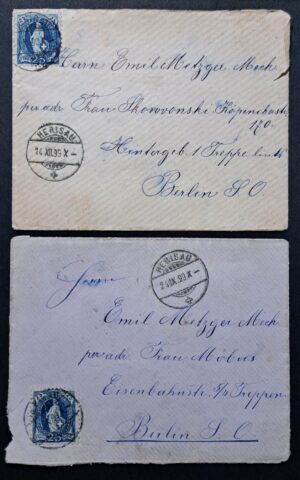 25
Herrn Emil Metzger Mech
per adr. Frau Skowonski Köpenickstr
170.
Hintergeb. 1 Treppe links
Berlin S. O.
HERISAU
14 XII. 99 X
HERISAU
2 IX. 99. X
Herrn
Emil Metzger Mech
per adr. Frau Möbus
Eisenbahnstr. Treppen
Berlin S. O.
25